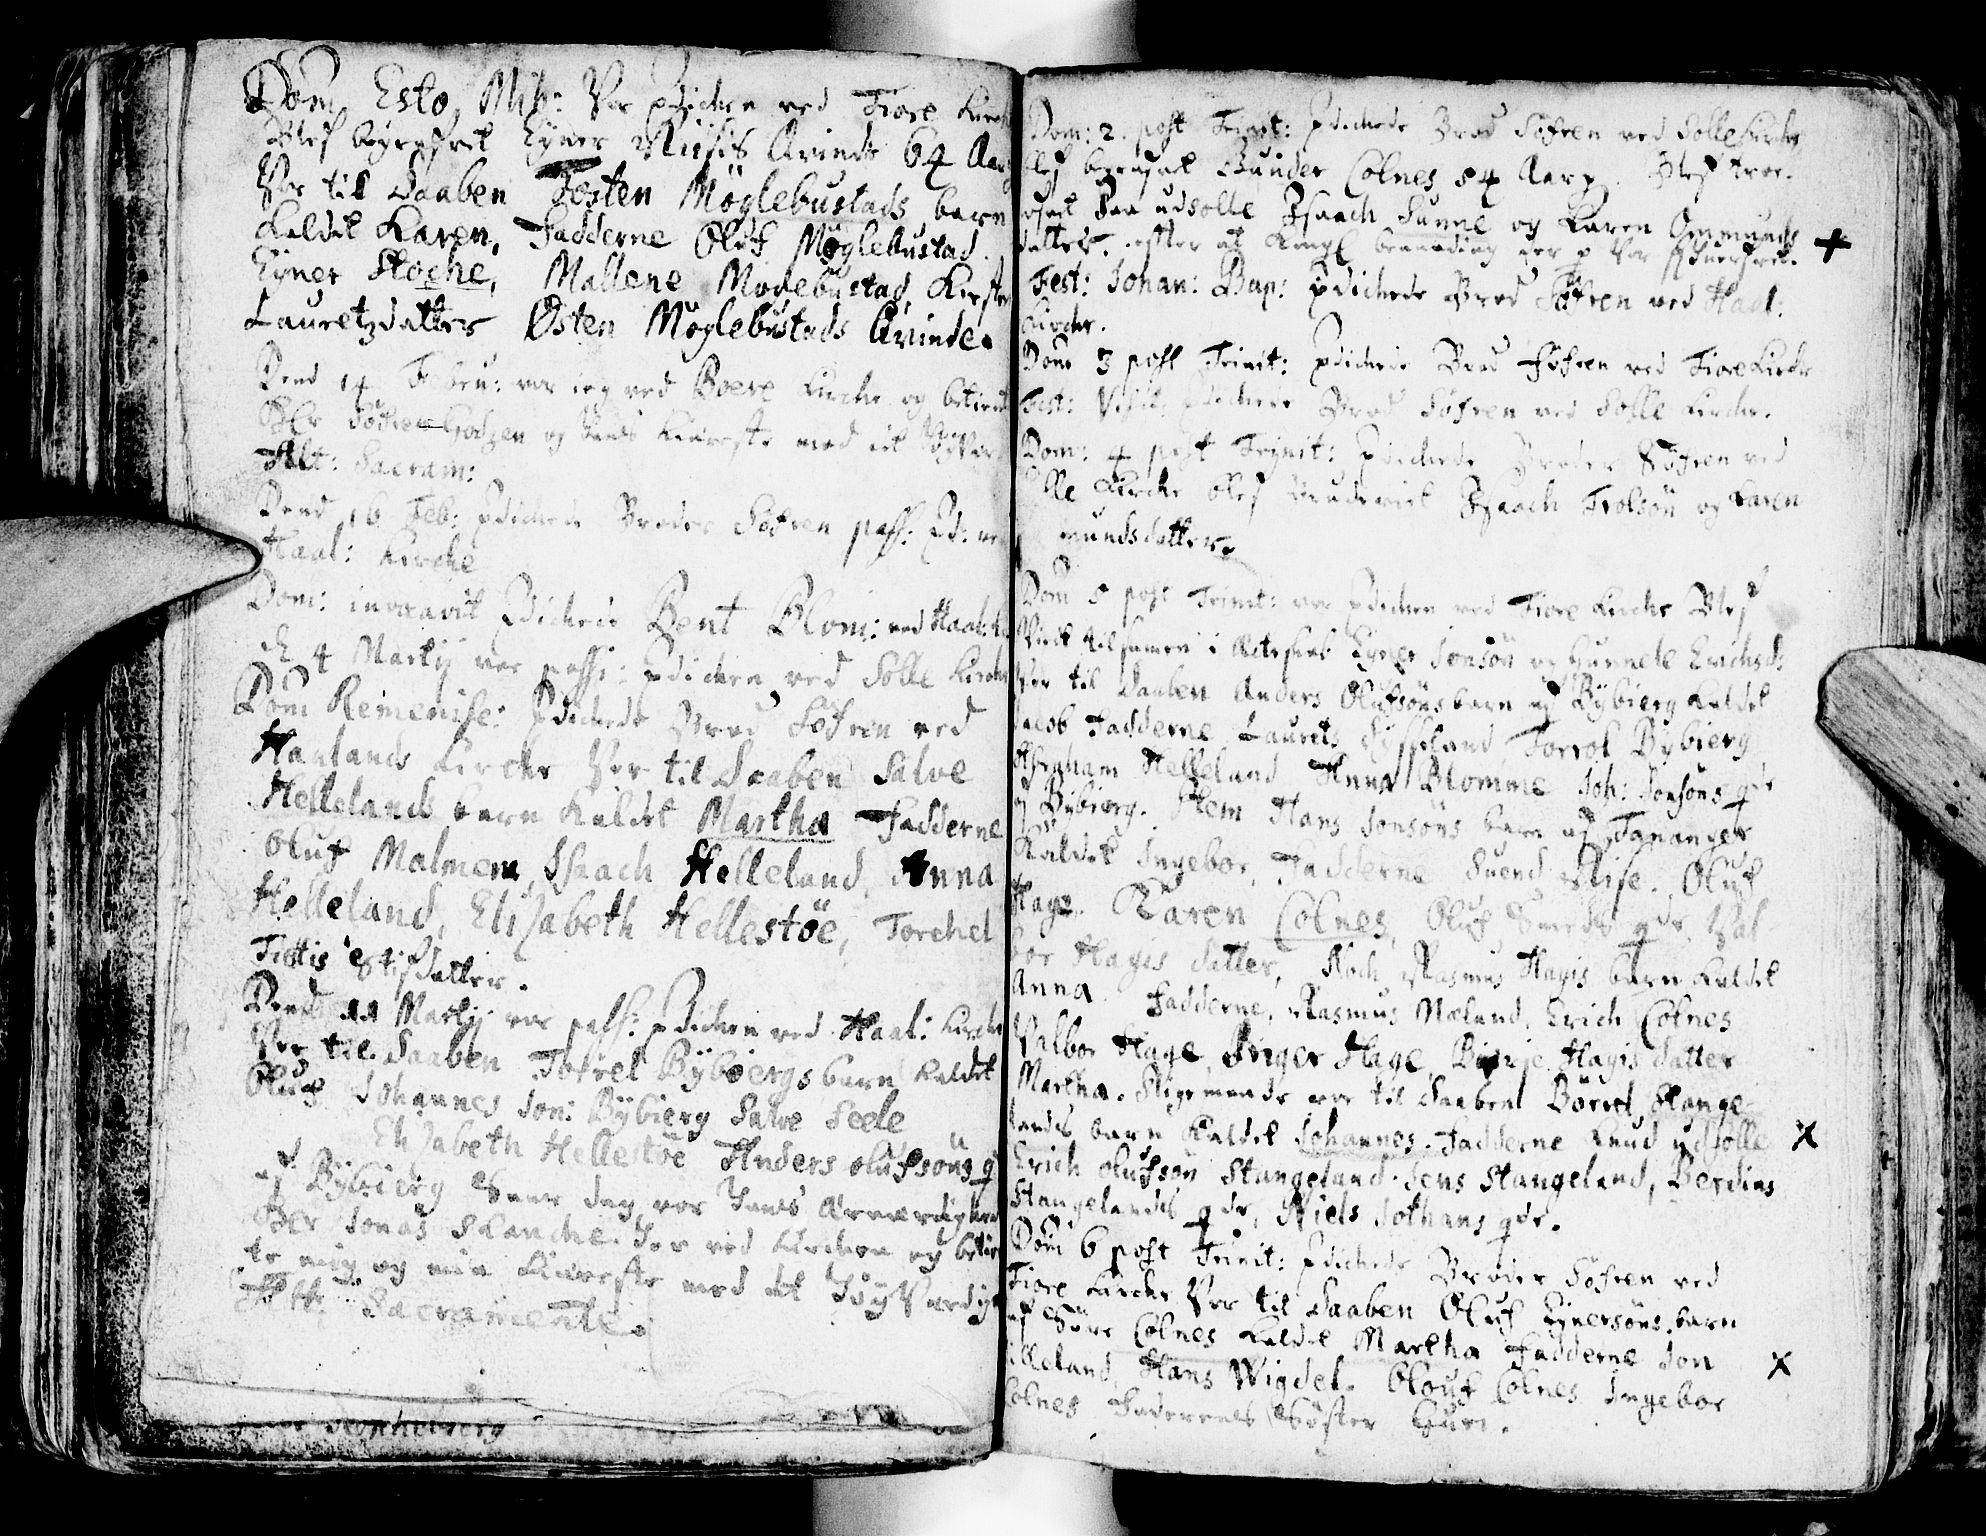 Dom. Esto Mih: Var Prædichen ved Fiore Kirch
Blef begrafvet Eyner Riisis Qvinde 64 Aar
Var til Daaben Testen Möglebustads barn
kaldet Karen, Fadderne Oluf Möglebustad.
Eyner Stoche, Mallene Moglebustad, Kirsten
Lauretzdatter Østen Möglebustads Qvinde.
Dend 14 Febru: var ieg ved Boere Kirche og betiente
Her Söfren Godtzen og hans Kiereste med det
Alt: Sacram:
Dend 16 Feb: Prædichede Broder Söfren pass: Pr: ved
Haal: Kirche
Dom: invocavit Prædichede Bent Blom: ved Haal: Ki
d. 4 Martij var passi: Prædichen ved Solle Kirche
Dom Reminise: Prædichede Brod Söfren ved
Haalands Kirche Var til Daaben Salve
Hellelands barn kaldet Martha Fadderne
Oluf Malmem, Isaach Helleland, Anna
Helleland, Elisabeth Hellestöe, Torchel
Tiettis Stifdatter.
Dend 11 Martij var pass: Prædichen ved Haal: Kirche
Var til Daaben Tofrel Bybiergs barn kaldet
Oluf Johannes Jon: Bybierg Salve Seele
Elisabeth Hellestöe Anders Olufsöns q
af Bybierg Samme dag var hans Ærværdighed
Her Jonas Schanche her ved Kirchen og betien
te mig og min Kiereste med det Höyværdige
Alt: Sacramente.
Dom: 2. post Trinit: Prædichede Brod Söfren ved Solle Kirche
blef begrafvet Gunder Colnes 84 Aar. Blef troe-
lofvet Paa udsolle Isaach Sunne og Karen Ommunds
datter. efter at Kongl benaading der p var
Fest: Johan: Bap: Prædichede Brod Söfren ved Haal:
Kirche.
Dom 3 post Trinit: Prædichede Brod Söfren ved Fiore Kirche
Fest: Visit: Prædichede Brod Söfren ved Solle Kirche.
Dom: 4 post Trinit: Prædichede Broder Söfren ved
Solle Kirche blef Brudeviet Isaach Trolsön og Karen
mundsdatter.
Dom 5 post Trinit: var Prædichen ved Fiore Kirche Blef
Viet tilsamen i Ecteskab Eyner Jonsön og Gunnele Erichsd:
Var til Daaben Anders Olufsöns barn af Bybierg kaldet
Jacob Fadderne Laurets Tofrol Bybierg
Abraham Helleland Anna Blomme Joh: Jonsöns qde
af Bybierg. Item Hans Jonsöns barn af Tananger
Kaldet Ingebor, Fadderne Suend Riise. Oluf
Hage. Karen Colnes, Oluf Smeds qde, Val-
bor Hagis datter, Noch Rasmus Hagis barn kaldet
Anna Fadderne, Rasmus Mæland, Erich Colnes
Valbor Hage, Inger Hage, Birje Hagis datter
Martha. Ligemaade var til Daaben Börrel Stange-
lands barn kaldet Johannes. Fadderne Knud udsolle
Erich Olufsön Stangeland. Jens Stangeland, Berdius
Stangelands qde, Niels Jothans qde.
Dom 6 post Trinit: Prædichede Broder Söfren ved
Fiore Kirche Var til Daaben Oluf Eynersöns barn
af Söre Colnes kaldet Martha Fadderne Jon
Helleland, Hans Wigdel. Olouf Colnes Ingebor
Colnes Faderens Söster Guri.